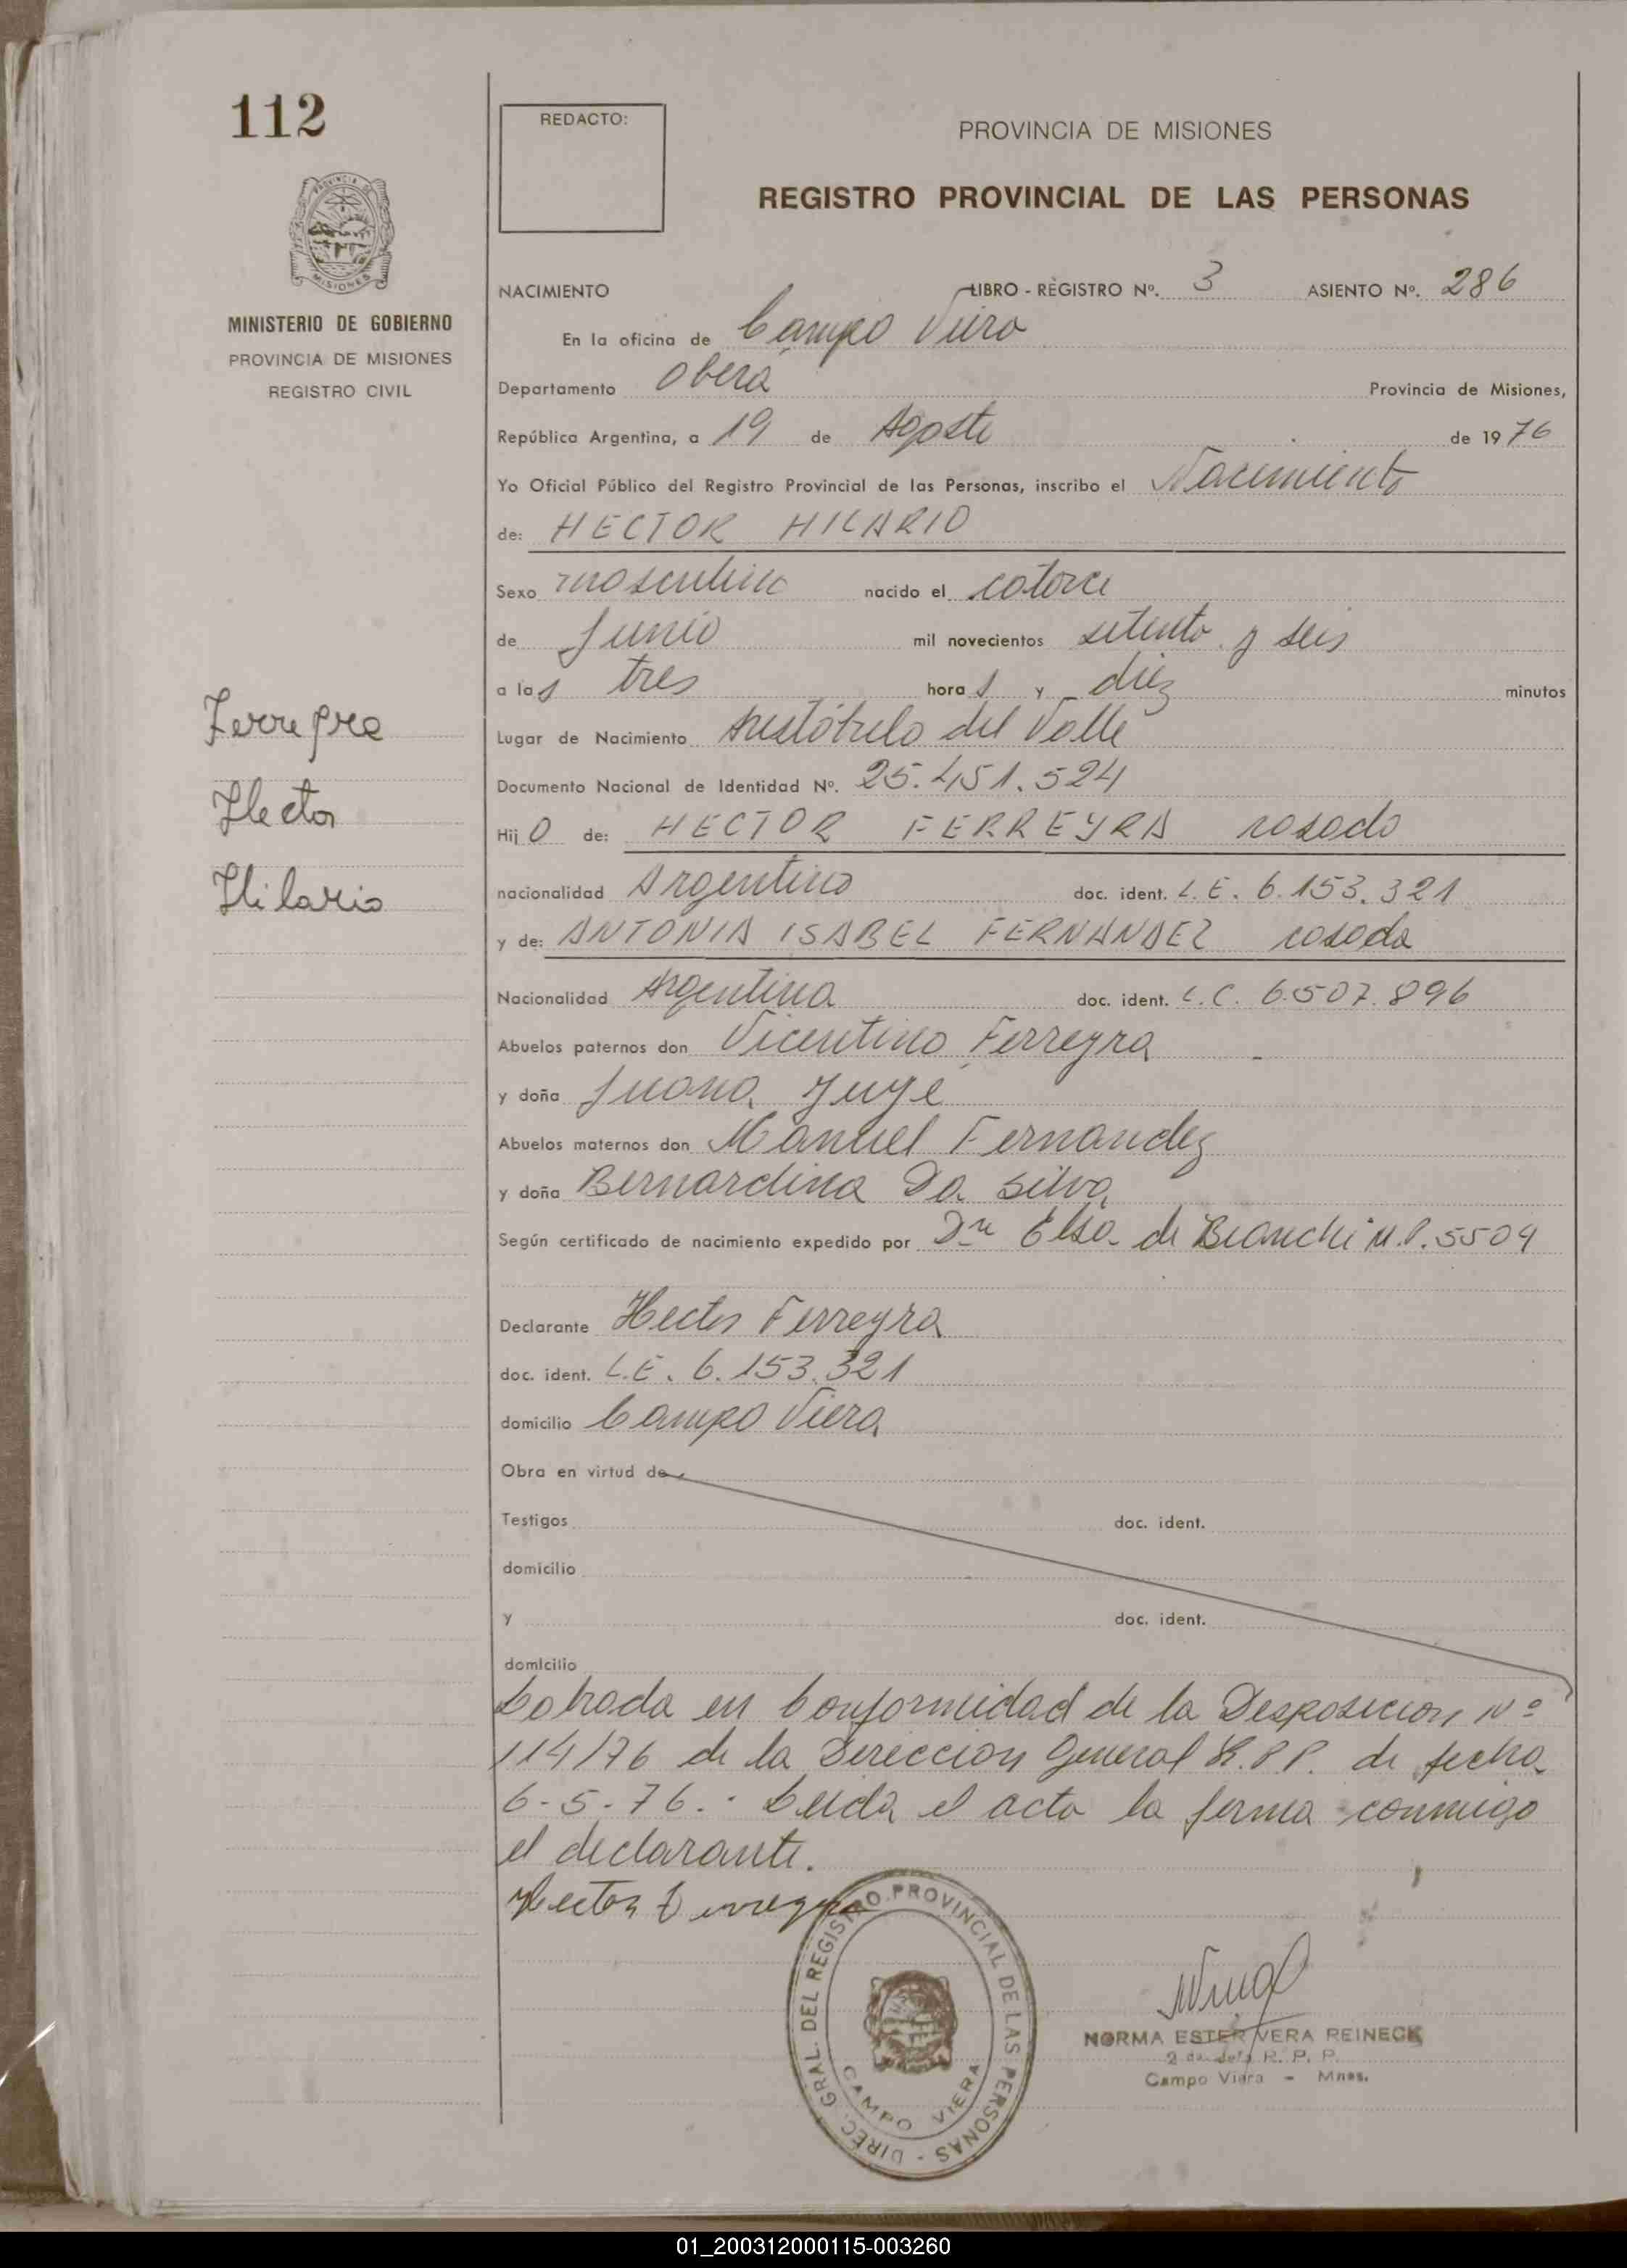 112
REDACTO:
PROVINCIA DE MISIONES
REGISTRO PROVINCIAL DE LAS PERSONAS
PROVINCIA DE
MISIONES
MINISTERIO DE GOBIERNO
PROVINCIA DE MISIONES
REGISTRO CIVIL
NACIMIENTO LIBRO - REGISTRO Nº. 3 ASIENTO Nº. 286
En la oficina de Campo Viera
Departamento Oberá Provincia de Misiones,
República Argentina, a 19 de Agosto de 1976
Yo Oficial Público del Registro Provincial de las Personas, inscribo el Nacimiento
de: HECTOR HILARIO
Sexo masculino nacido el catorce
de Junio mil novecientos setenta y seis
a las tres horas y diez minutos
Ferreyra
Hector
Hilario
Lugar de Nacimiento Aristóbulo del Valle
Documento Nacional de Identidad Nº. 25.451.524
Hijo de: HECTOR FERREYRA casado
nacionalidad Argentino doc. ident. L.E. 6.153.321
y de: ANTONIA ISABEL FERNANDEZ casada
Nacionalidad Argentina doc. ident. L.C. 6.507.896
Abuelos paternos don Vicentino Ferreyra
y doña Juana
Abuelos maternos don Manuel Fernandez
y doña Bernardina Da Silva
Según certificado de nacimiento expedido por Dra Elsa de Bianchi M.P. 5504
Declarante Hector Ferreyra
doc. ident. L.E. 6.153.321
domicilio Campo Viera
Obra en virtud de
Testigos doc. ident.
domicilio
y doc. ident.
domicilio
Labrada en Conformidad de la Desposicion Nº
114/76 de la Direccion General R.P.P. de fecha
6-5-76.- Leida el acta la firma conmigo
el declarante.
Hector Ferreyra
DIREC. GRAL. DEL REGISTRO PROVINCIAL DE LAS PERSONAS -
CAMPO VIERA
NORMA ESTER VERA REINECK
2 da. Jefa R. P. P.
Campo Viera - Mnes.
01_200312000115-003260